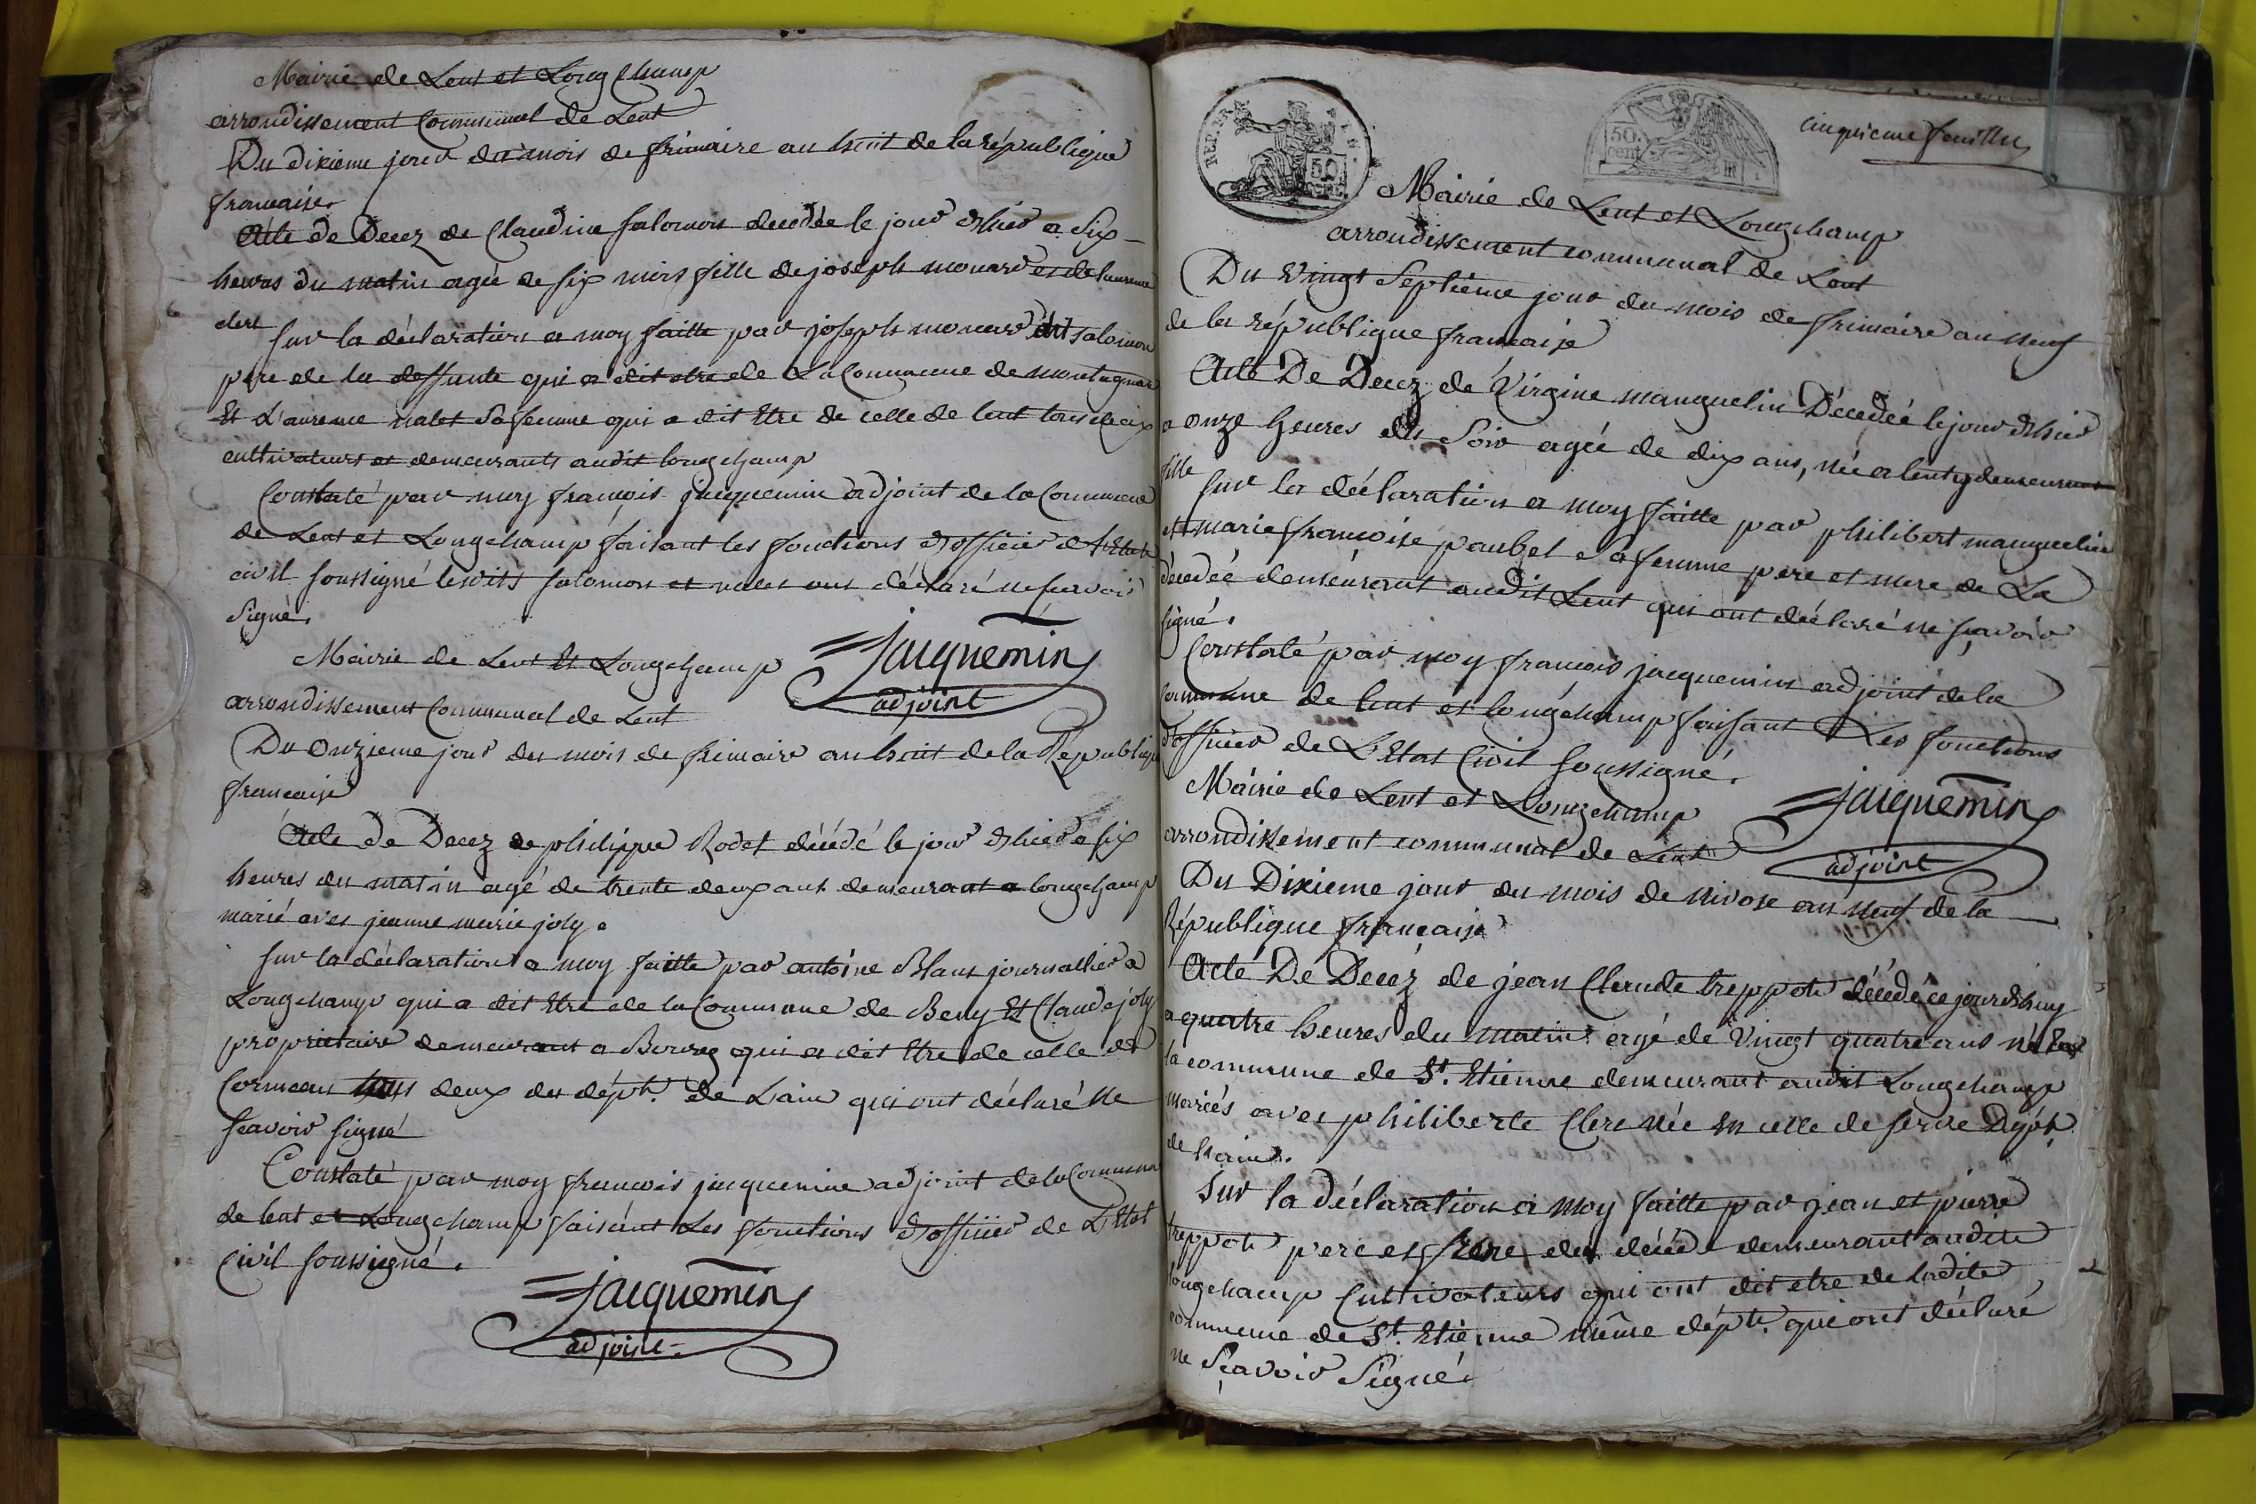 Mairie de Lent et Longchamp
arrondissement Communal de Lent
Du dixieme jour du mois de frimaire an huit de la république
francaise
Acte de Decez de Claudine Salomon decedée le jour d'hier a Six
heures du matin agée de six mois fille de joseph monard et de laurence
Sur la déclaration a moy faitte par joseph monard dit Salomon
pere de la deffunte qui a dit etre de La Commune de montagnat
Et Laurence nalet Sa femme qui a dit Etre de celle de lent tous deux
cultivateurs et demeurants audit longchamp
Constaté par moy françois jacquemin adjoint de la Commune
de Lent et Longchamp faisant les fonctions d'officier de l'Etat
civil soussigné lesdits Salomon et nalet ont déclaré ne scavoir
Signé.
jacquemin
adjoint
Mairie de Lent Et Longchamp
arrondissement Communal de Lent
Du Onzieme jour du mois de frimaire an huit de la Republique
francaise
Acte de Decez de philippe Rodet décédé le jour d'hier a six
heures du matin agé de trente deux ans demeurant a longchamp
marié avec jeanne marie joly.
Sur la déclaration a moy faitte par antoine Blanc journallier a
Longchamp qui a dit Etre de la Commune de Beny Et Claude joly
propriétaire demeurant a Bourg qui a dit Etre de celle de
Cormoau tous deux du dépt. de Lain qui ont déclaré Ne
scavoir signé
Constaté par moy francois jacquemin adjoint de la Commune
de lent et Longchamp faisant Les fonctions d'officier de L'Etat
Civil soussigné.
jacquemin
adjoint
REP. FRA
50
50 cent
cinquieme feuillet
Mairie de Lent et Longchamp
arrondissement communal de Lent
Du Vingt Septieme jour du mois de frimaire an Neuf
de la république francaise
Acte De Decez de Virgine manguelin Décedée le jour d'hier
a onze heures du Soir agée de dix ans, née a lent y demeurant
fille
Sur la déclaration a moy faitte par philibert manguelin
et marie francoise paubel Sa femme pere et mere de La
décedée demeurant audit Lent qui ont déclaré ne sçavoir
signé.
Constaté par moy francois jacquemin adjoint de la
commune de lent et longchamp faisant Les fonctions
d'officier de L'Etat Civil soussigné.
jacquemin
adjoint
Mairie de Lent et Longchamp
arrondissement communal de Lent
Du Dixieme jour du mois de nivose an Neuf de la
République francaise
Acte De Decez de jean Claude treppoz décédé ce jourd'huy
a quatre heures du matin agé de Vingt quatre ans né En
la commune de St. Etienne demeurant audit Longchamp
mariés avec philiberte Clerc Née En celle de servae Dept.
de Lain.
Sur la déclaration a moy faitte par jean et pierre
treppoz pere et frere du décédé demeurant audit
longchamp Cultivateurs qui ont dit etre de ladite
commune de St. Etienne même dépt. qui ont déclaré
ne Sçavoir Signé.